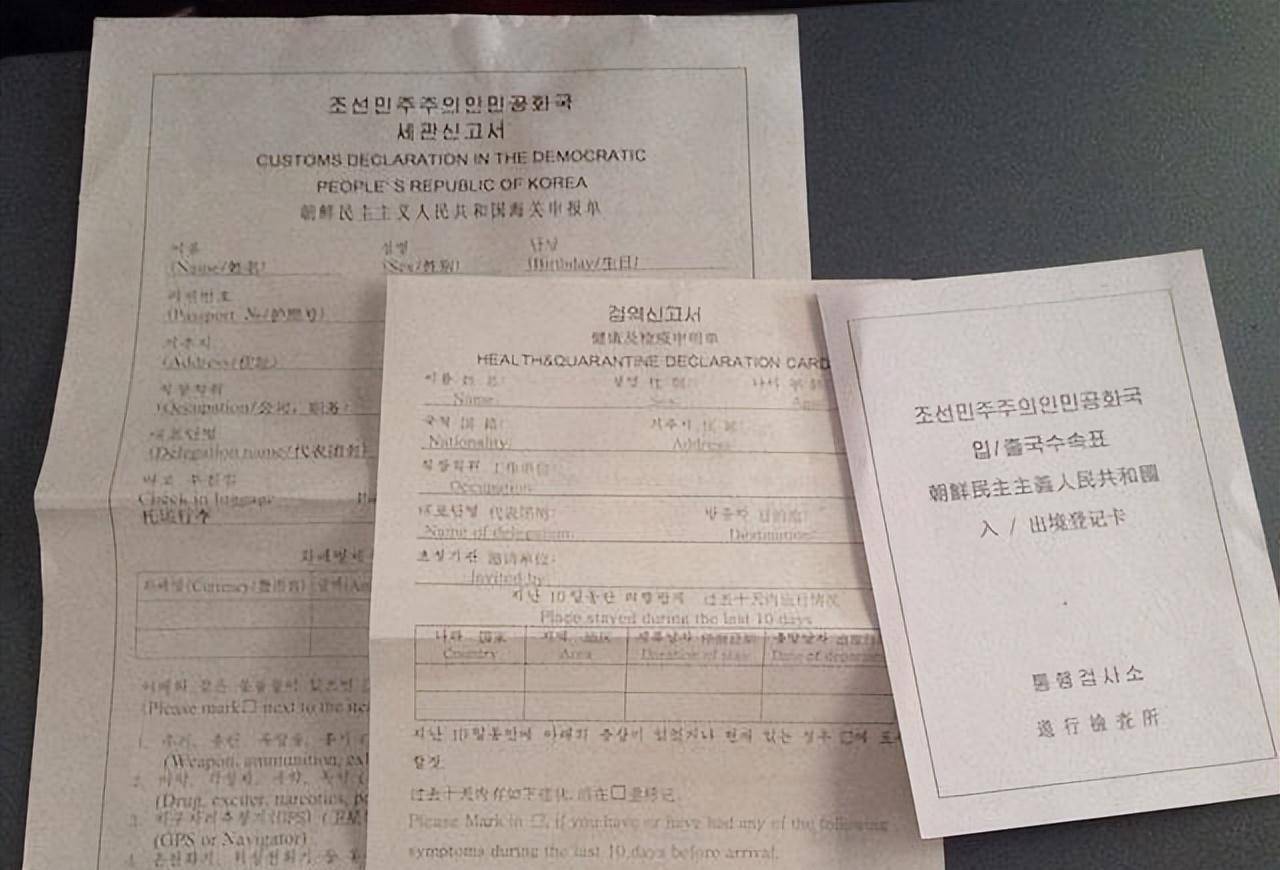 조선민주주의인민공화국
세관신고서
CUSTOMS DECLARATION IN THE DEMOCRATIC
PEOPLE'S REPUBLIC OF KOREA
朝鲜民主主义人民共和国海关申报单
이름
(Name/姓名)
성별
(Sex/性别)
난날
(Birthday/生日)
려권번호
(Passport №/护照号)
거주지
(Address/住址)
직장직위
(Occupation/公司, 职务)
대표단명
(Delegation name/代表团名)
Check in luggage
托运行李
화폐명(Currency/货币名)
(Please mark□ next to the
1.
(Weapon, ammunition,
2.
(Drug, exciter, narcotics,
3.
(GPS or Navigator)
4.
검역신고서
健康及检疫申明单
HEALTH&QUARANTINE DECLARATION CARD
이름 姓名:
Name:
성별 性别:
Sex:
나이 年龄:
Age:
국적 国籍:
Nationality:
거주지 住址:
Address:
직장직위 工作单位:
Occupation:
대표단명 代表团名:
Name of delegation:
방문지 目的地:
Destination:
초청기관 邀请单位:
Invited by:
지난 10일동안 려행한곳 过去十天内旅行情况
Place stayed during the last 10 days
나라 国家
Country
지역 地区
Area
체류날자 停留日期
Duration of stay
출발날자
Date of
지난 10일동안에 아래의 증상이 있었거나 현재 있는 경우 □에
할것
过去十天内有如下变化, 请在□里标记.
Please Mark in □, if you have or have had any of the following
symptoms during the last 10 days before arrival.
조선민주주의인민공화국
입/출국수속표
朝鮮民主主義人民共和國
入 / 出境登记卡
통행검사소
通行檢查所